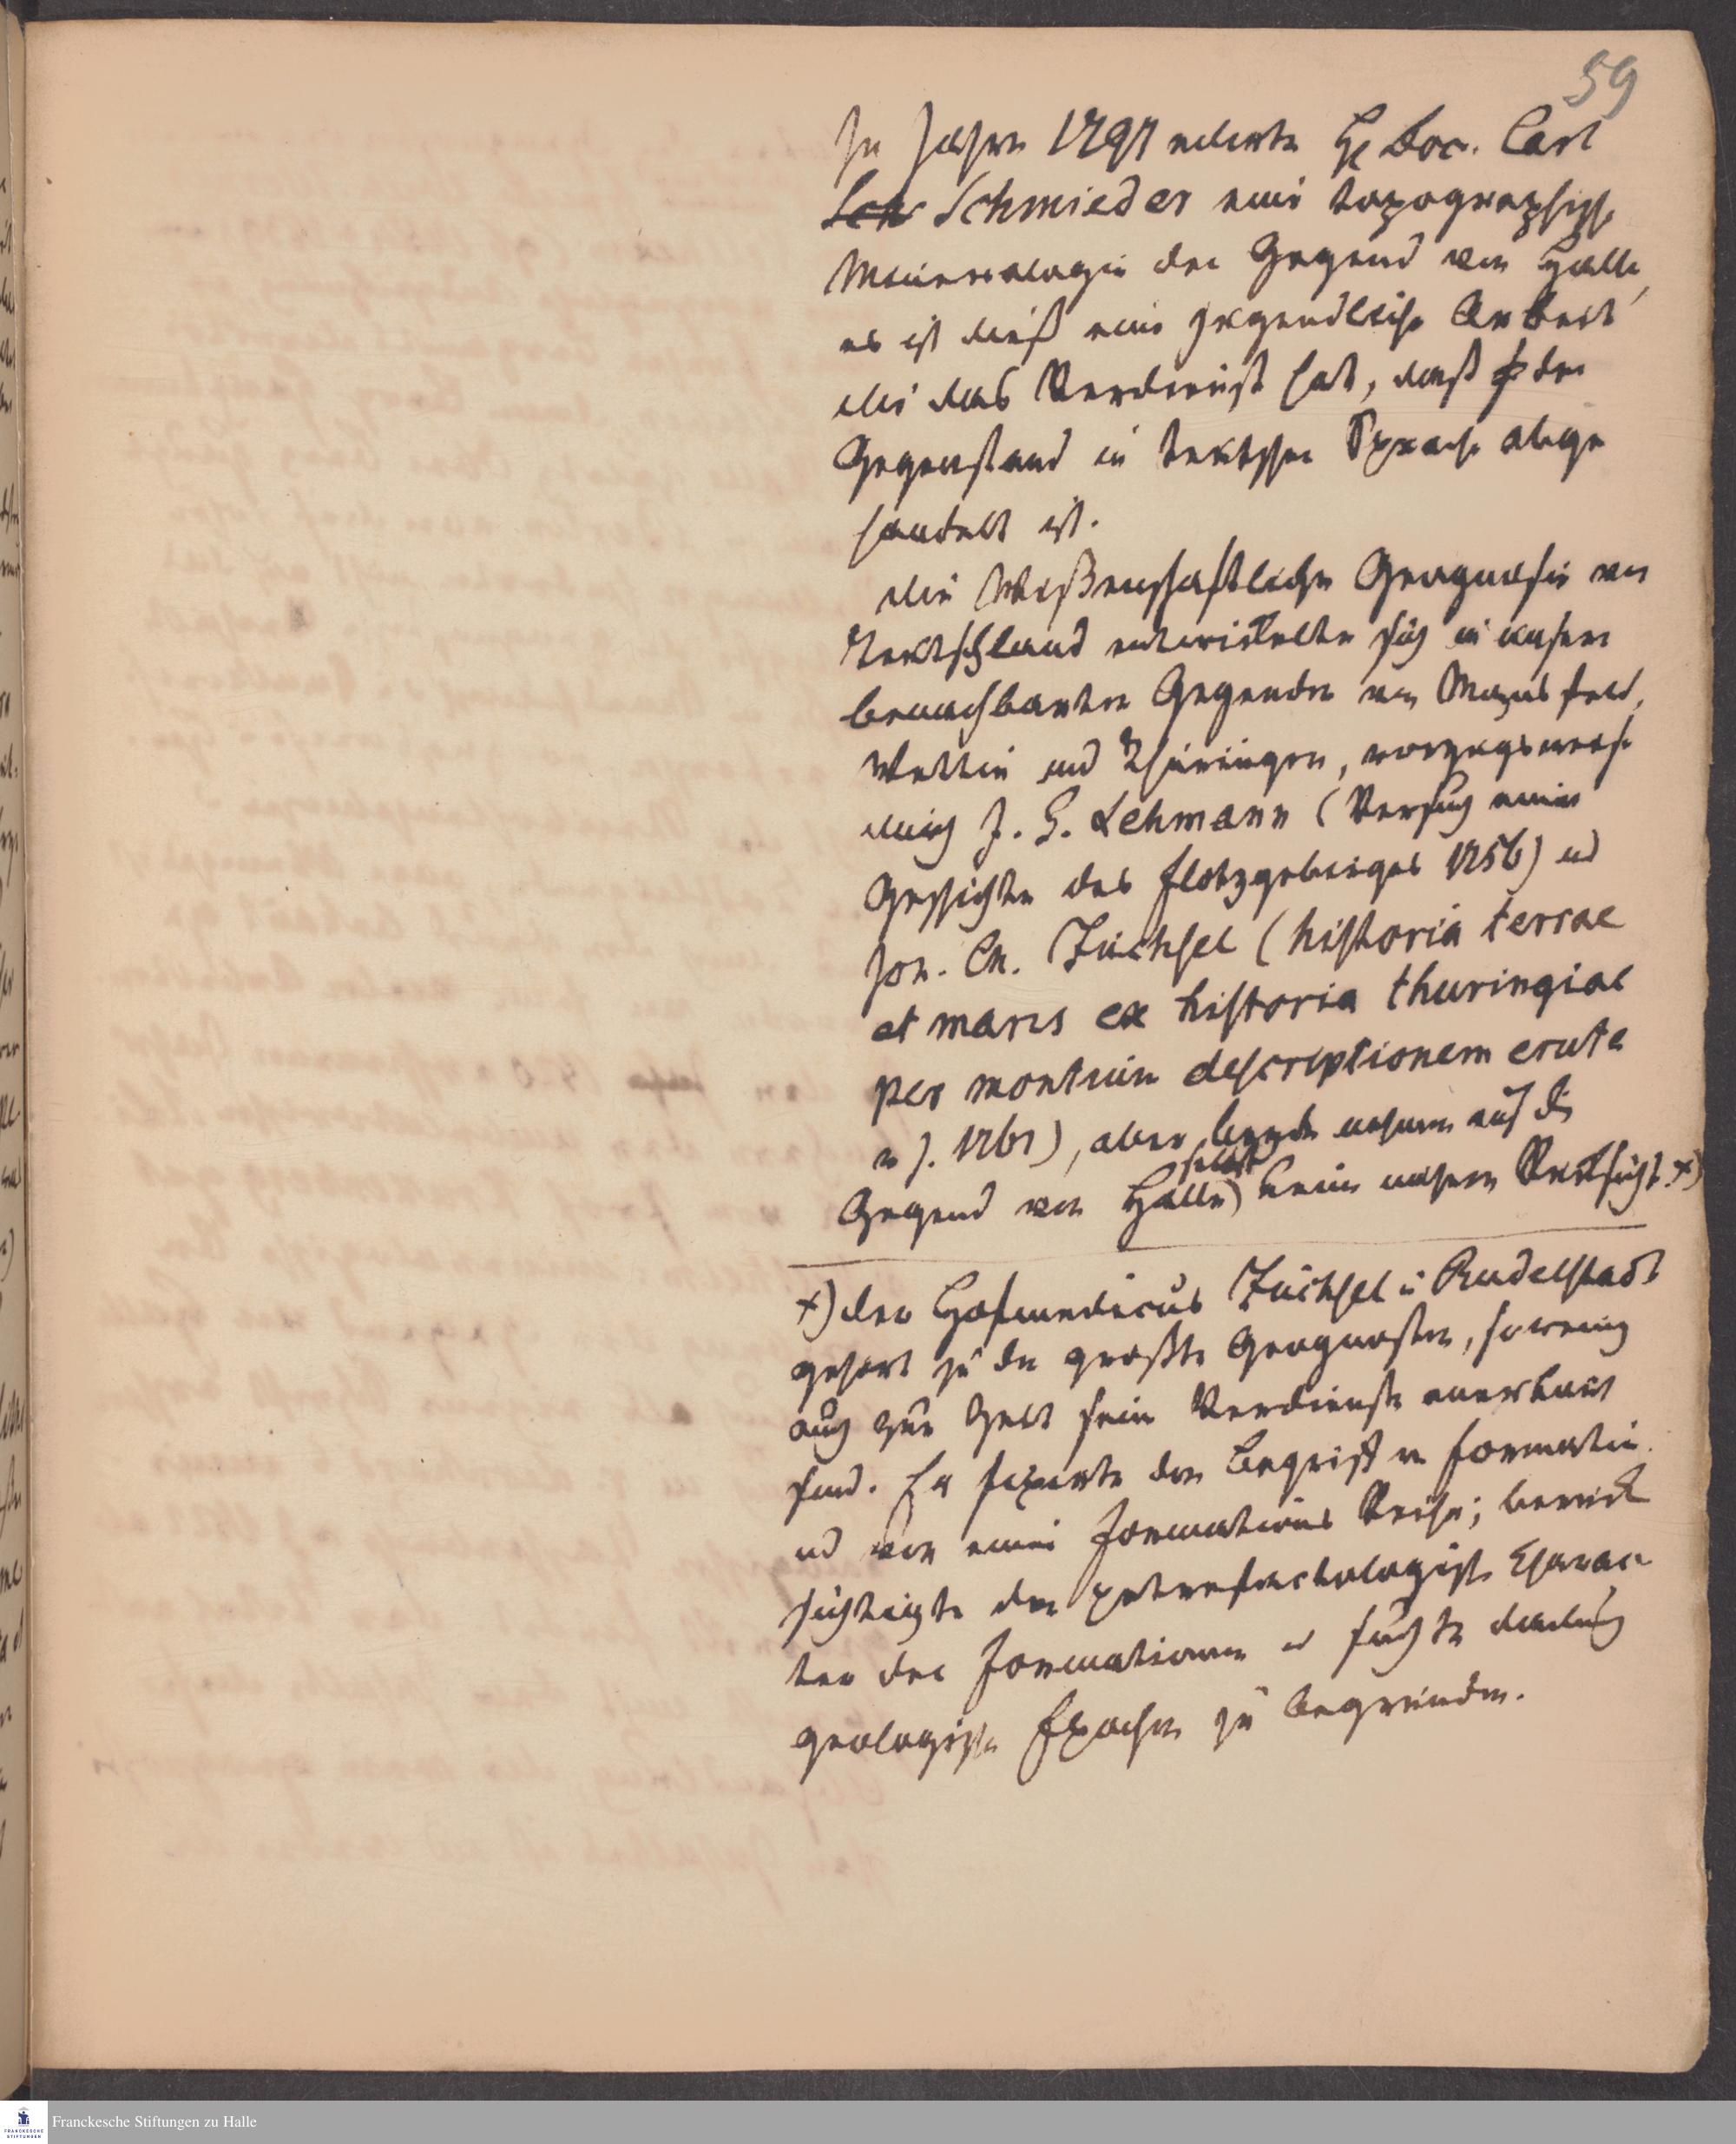 59
Im Jahre 1797 edirte H Doc. Carl
Sch Schmieder eine topographische
Mineralogie der Gegend von Halle,
es ist dieß eine jugendliche Arbeit
die das Verdienst hat, daß der
Gegenstand in teutscher Sprache abge
handelt ist.
die Wißenschaftliche Geognosie von
Teutschland entwickelte sich in unsern
benachbarten Gegenden von Mansfeld,
Wettin und Thüringen, vorzugsweise
durch J. G. Lehmann (Versuch einer
Geschichte des Flötzgebirges 1756) und
Joh. Ch. Füchsel (historia terrae
et maris ex historia thuringiae
per montium descriptionem erute
v J. 1761), aber beyde nahmen auf die
Gegend von Halle selbst keine nähere Rücksicht. x)
x) der Hofmedicus Füchsel in Rudelstadt
gehört zu den großten Geognosten, so wenig
auch zur Zeit seine Verdienste anerkannt
sind. Er fixirte den Begriff von Formation
und von einer Formations Reihe; berück
sichtigte den petrefactologische Charac
ter der Formationen u suchte dadurch
geologische Epochen zu begründen.
Franckesche Stiftungen zu Halle
FRANCKESCHE
STIFTUNGEN